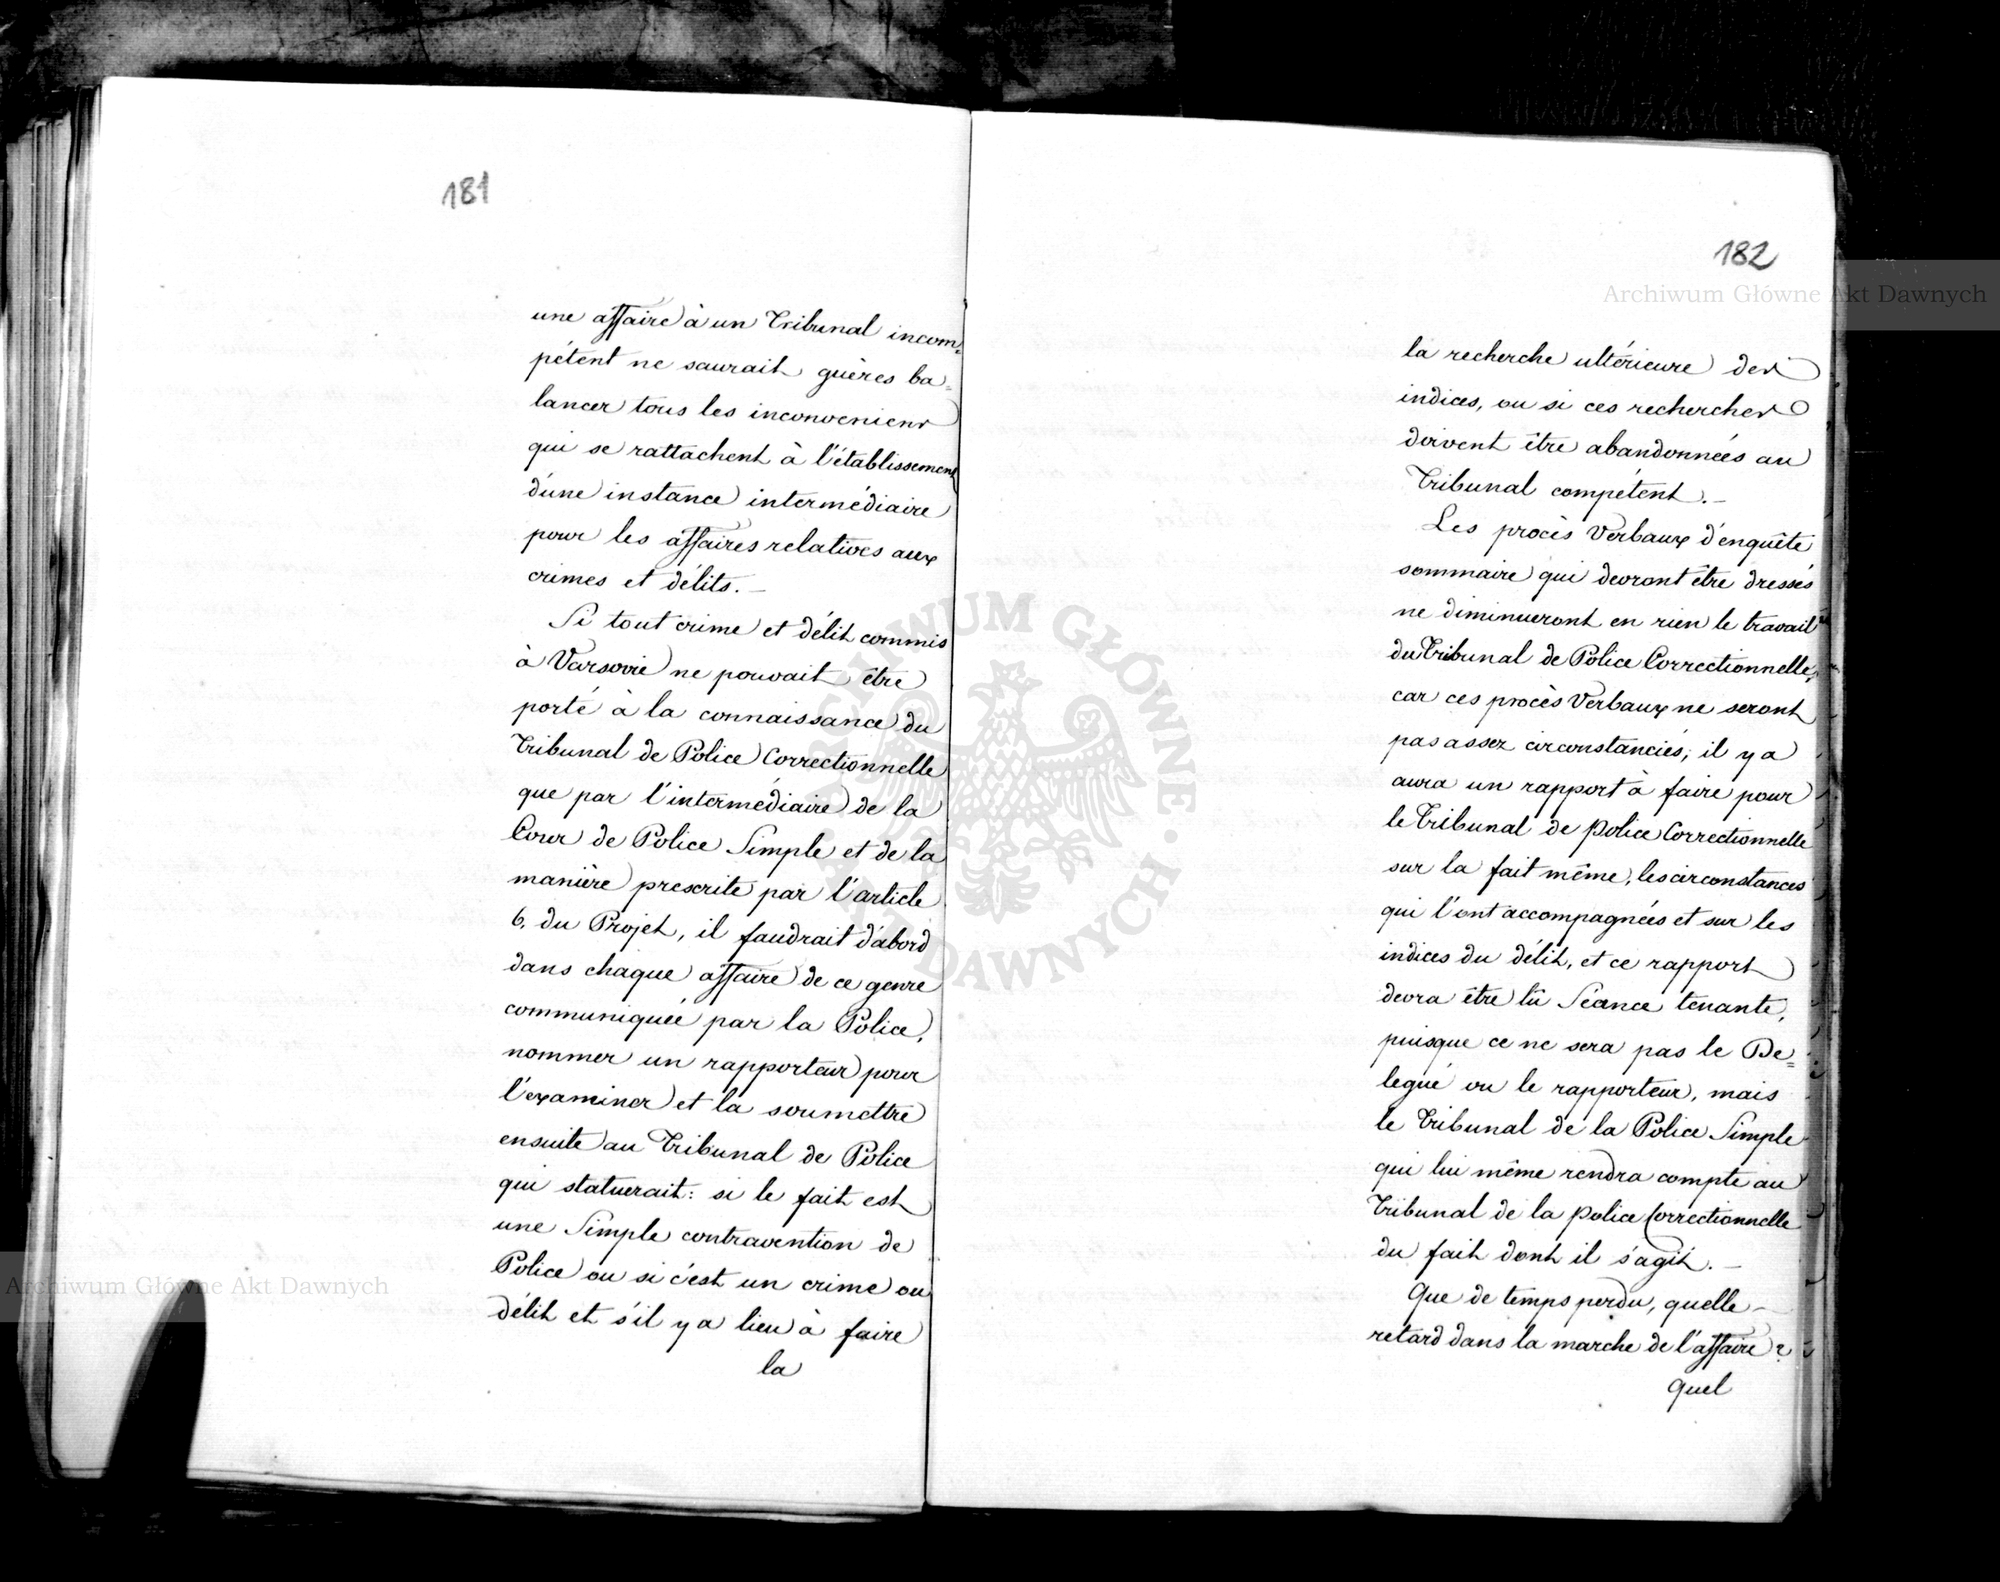 181
une affaire à un Tribunal incom=
pétent ne saurait guères ba=
lancer tous les inconveniens
qui se rattachent à l'établissement
d'une instance intermédiaire
pour les affaires relatives aux
crimes et délits. —
Si tout crime et délit commis
à Varsovie ne pouvait être
porté à la connaissance du
Tribunal de Police Correctionnelle
que par l'intermédiaire de la
Cour de Police Simple et de la
manière prescrite par l'article
6, du Projet, il faudrait d'abord
dans chaque affaire de ce genre
communiquée par la Police,
nommer un rapporteur pour
l'examiner et la soumettre
ensuite au Tribunal de Police
qui statuerait: si le fait est
une Simple contravention de
Police ou si c'est un crime ou
délit et s'il y a lieu à faire
la
182
la recherche ultérieure des
indices, ou si ces recherches
doivent être abandonnées au
Tribunal compétent. —
Les procès Verbaux d'enquête
sommaire qui devront être dressés
ne diminueront en rien le travail
du Tribunal de Police Correctionnelle,
car ces procès Verbaux ne seront
pas assez circonstanciés; il y a
aura un rapport à faire pour
le Tribunal de Police Correctionnelle
sur la fait même, les circonstances
qui l'ont accompagnées et sur les
indices du délit, et ce rapport
devra être lû Séance tenante,
puisque ce ne sera pas le De=
legué ou le rapporteur, mais
le Tribunal de la Police Simple
qui lui même rendra compte au
Tribunal de la Police Correctionnelle
du fait dont il s'agit. —
Que de temps perdu, quelle —
retard dans la marche de l'affaire?
Quel
Archiwum Główne Akt Dawnych
Archiwum Główne Akt Dawnych
ARCHIWUM GŁÓWNE · AKT DAWNYCH ·